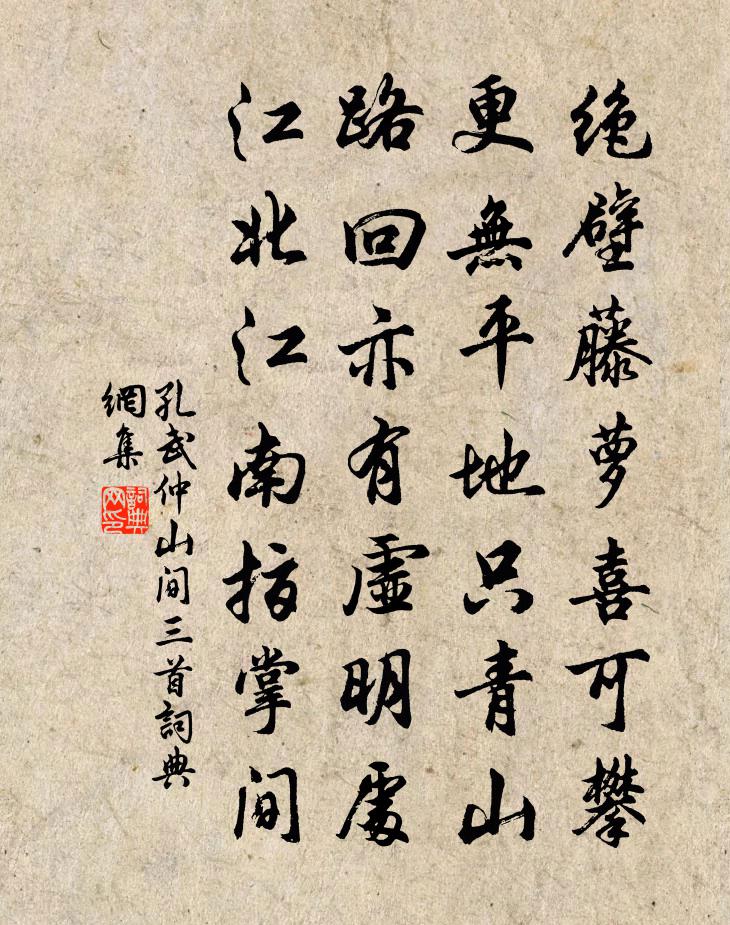 绝壁藤萝喜可攀
更無平地只青山
路回亦有虛明處
江北江南指掌間
孔武仲山间三首詞典
網集
詞典網印